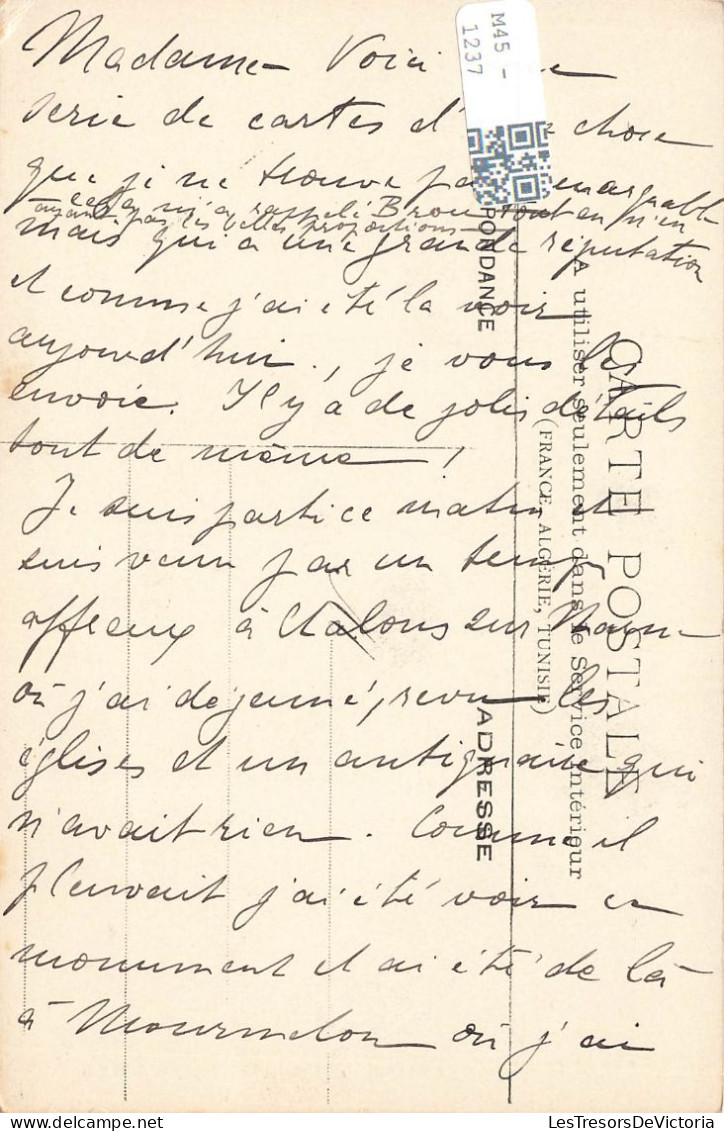 Madame Voici
serie de cartes d' chose
que je ne trouve pas remarquable
cela m'a rappelé Brou tout en n'en
ayant pas les belles proportions
mais qui a une grande réputation
et comme j'ai été la voir
aujourd'hui, je vous les
envoie. Il y a de jolis détails
tout de même !
Je suis parti ce matin et
suis venu par un temps
affreux à Chalons sur Marne
où j'ai dejeuné, revu les
églises et un antiquaire qui
n'avait rien. Comme il
pleuvait j'ai été voir ce
monument et ai été de là
à Mourmelon où j'ai
M45 -
1237
PONDANCE
ADRESSE
CARTE POSTALE
A utiliser seulement dans le Service intérieur
(FRANCE, ALGÉRIE, TUNISIE)
LesTresorsDeVictoria